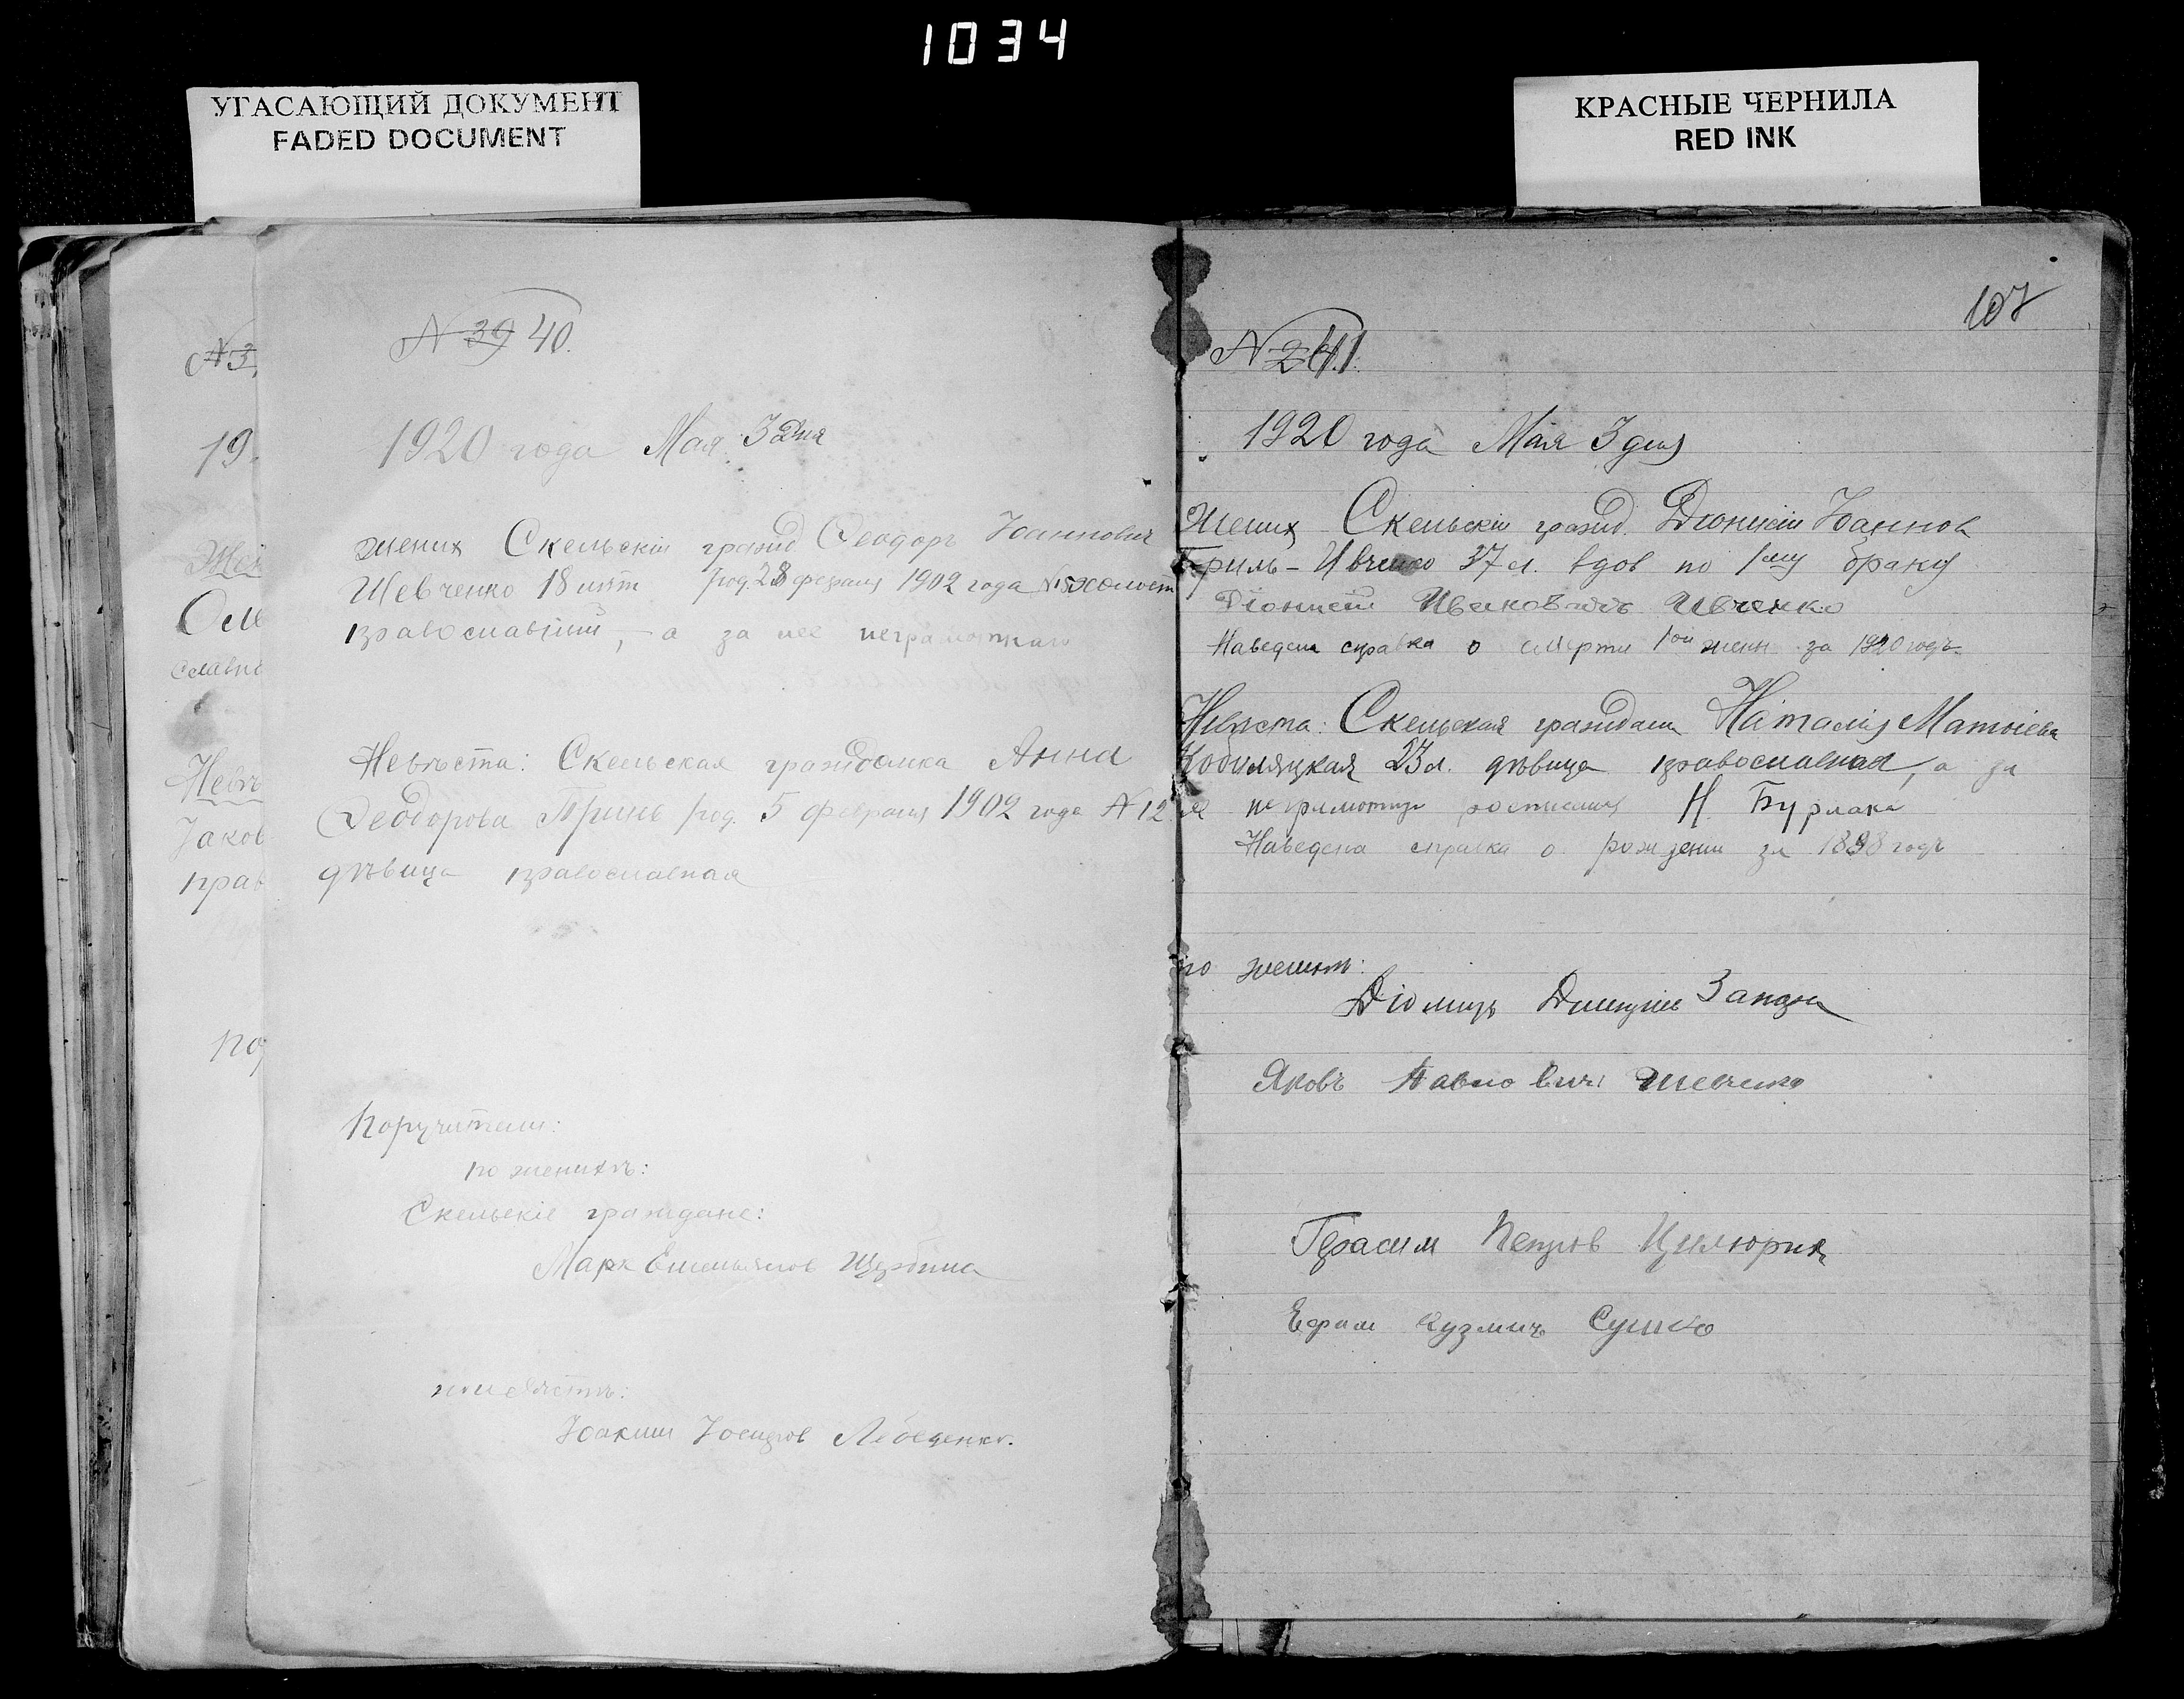 1034
УГАСАЮЩИЙ ДОКУМЕНТ
FADED DOCUMENT
КРАСНЫЕ ЧЕРНИЛА
RED INK
N 3
19
Жен
славн
Невѣ
Іаков
прав
N 39 40.
1920 года Мая 3 дня
жених Скельскій гражд. Ѳеодоръ Іоаннович
Шевченко 18 лѣт род. 28 февраля 1902 года холост
православный, а за нее неграмотную
Невѣста: Скельская гражданка Анна
Ѳеодорова Гринь род. 5 февраля 1902 года N 12
дѣвица православная
Поручители:
по женихѣ:
Скельскіе граждане:
Марк Емельянов Щербина
по невѣстѣ:
Іоаким Іосифов Лебеденко.
107
N 41.
1920 года Мая 3 дня
Жених Скельскій гражд. Діонисій Іоаннов
Гриль-Ивченко 37 л. вдов по 1му браку
Діонисій Ивановичъ Ивченко
Наведена справка о смерти 1ой жены за 1920 годъ
Невѣста: Скельская граждан. Наталія Матѳіева
Кобуляцкая 23 л. дѣвица православная, а за
нее неграмотную росписался Н. Бурлака
Наведена справка о рождении за 1898 годъ
по женихѣ:
Діомидъ
Яковъ Павлович Шевченко
Герасим Петров Цилюрик
Ефим Кузмичъ Сушко